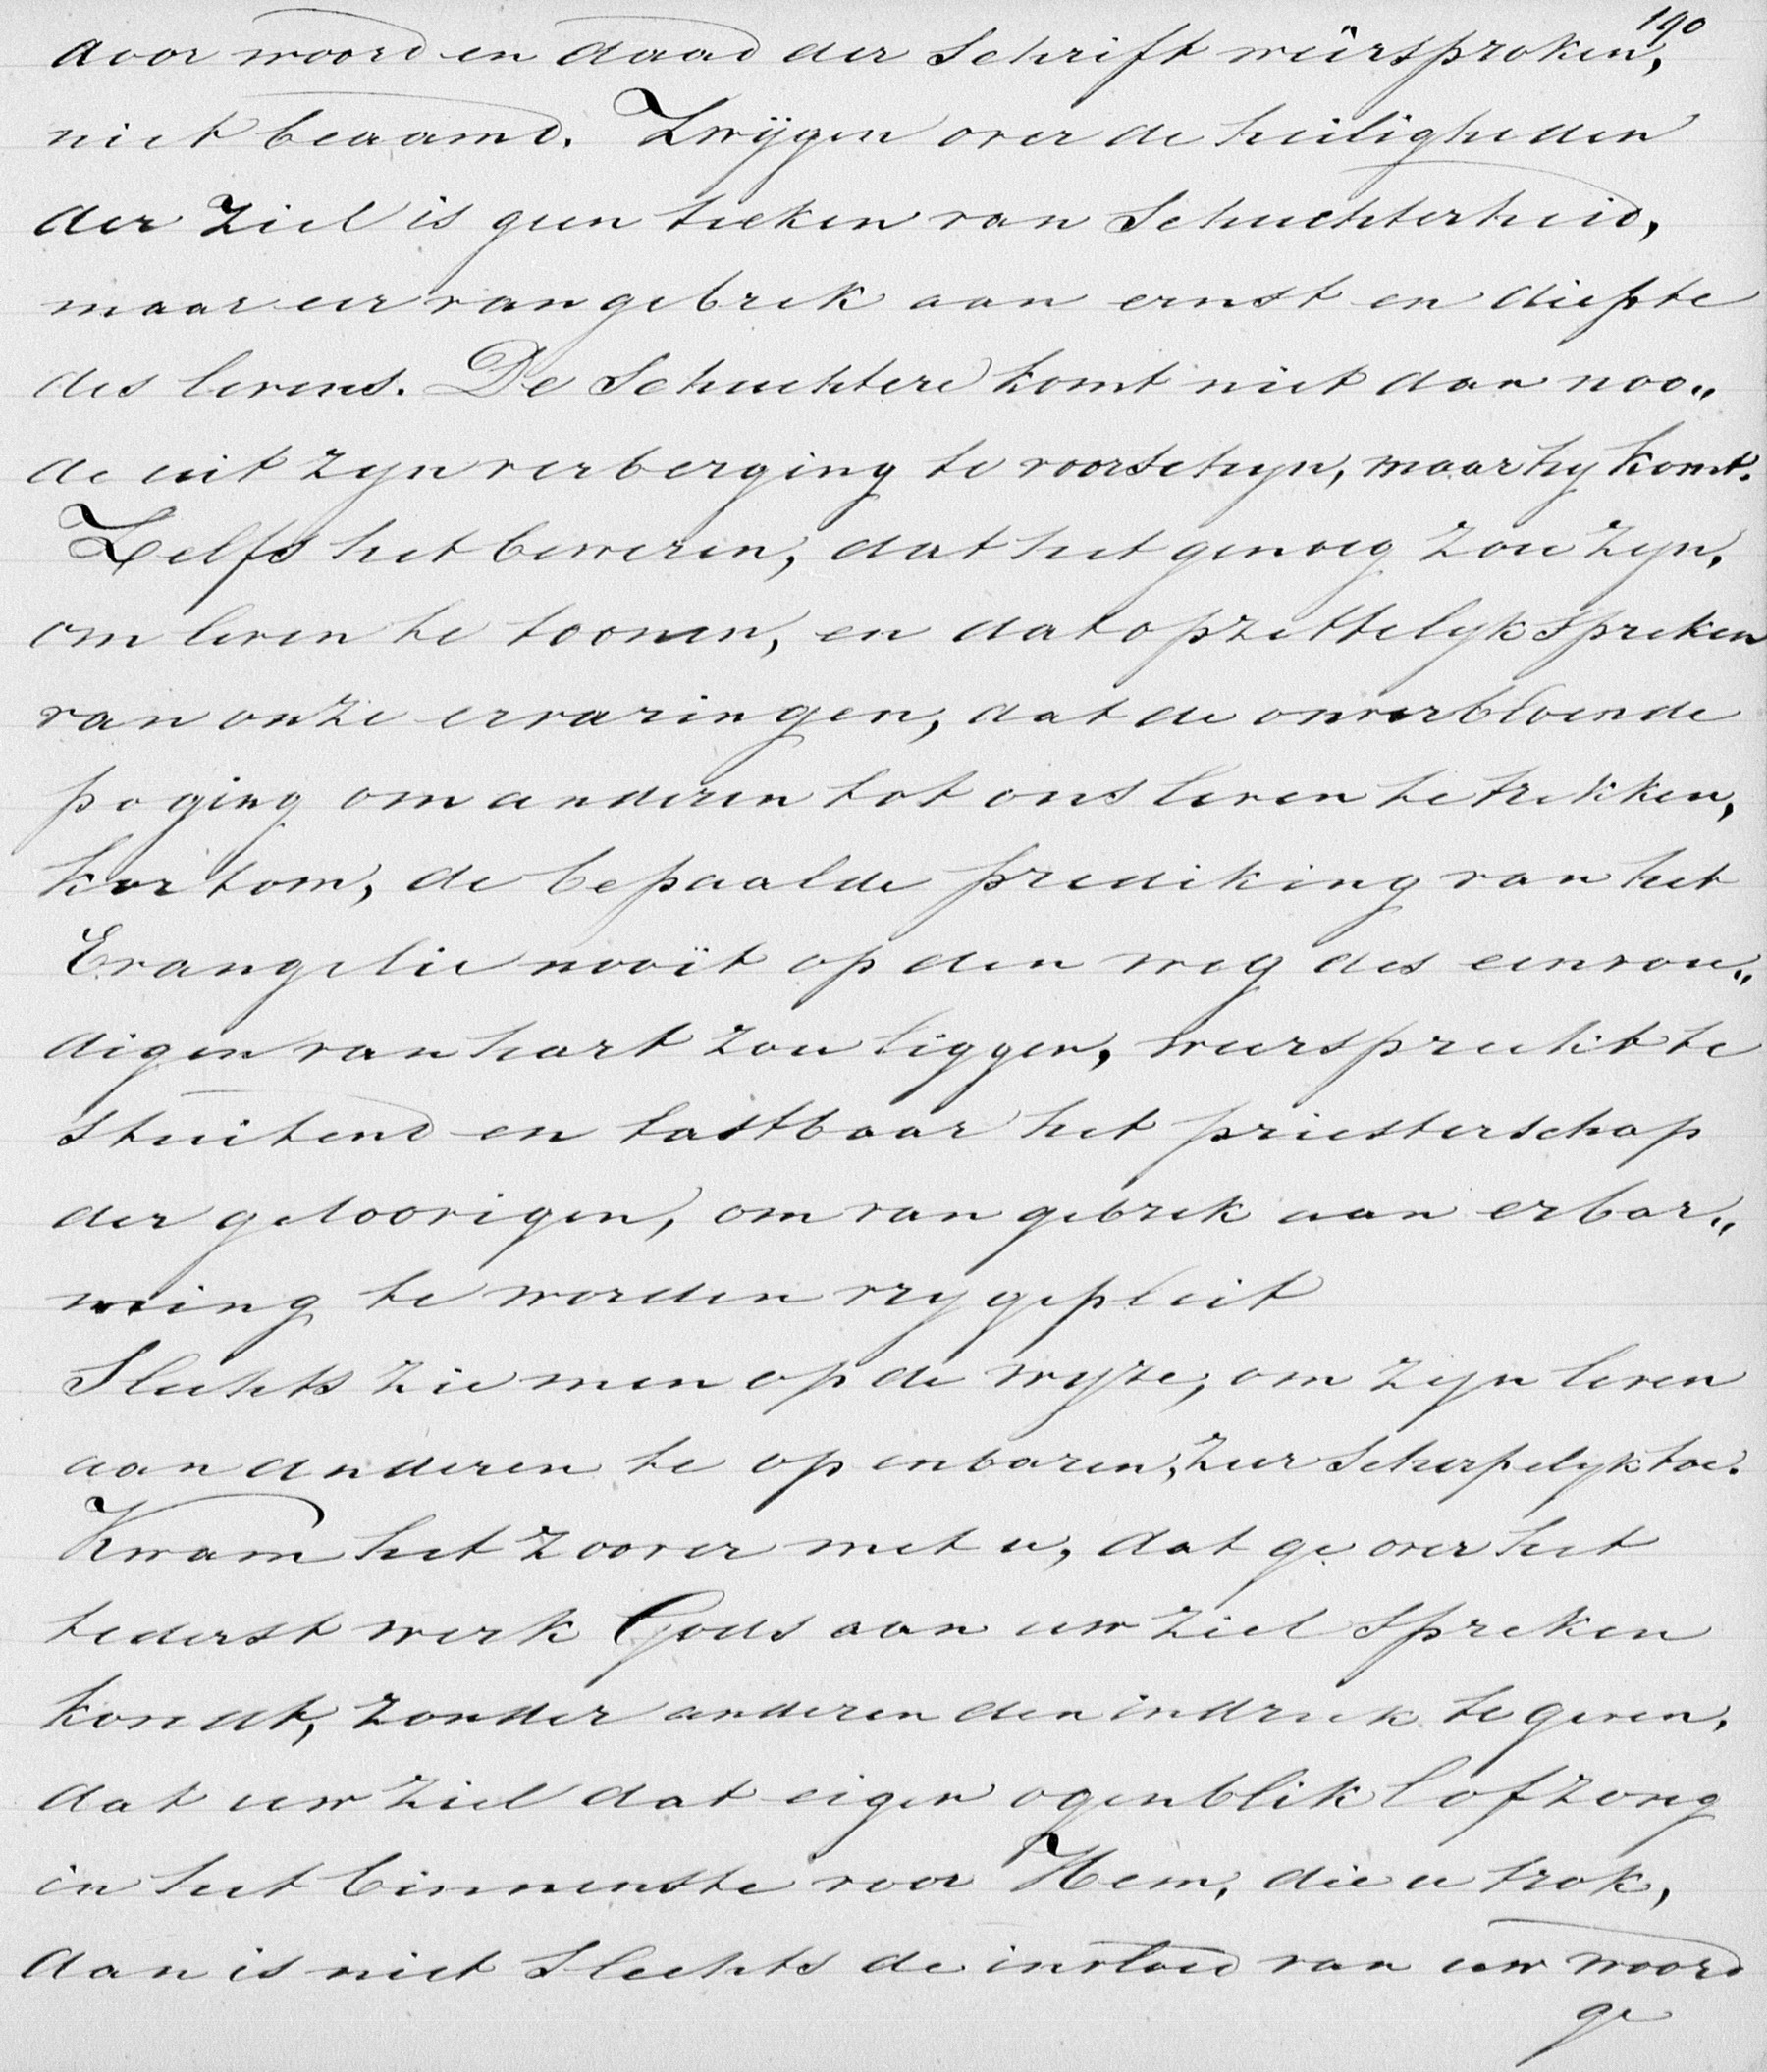 190
door woord en daad der Schrift weêrsproken,
niet beaamd. Zwijgen over de heiligheden
der ziel is geen teeken van Schuchterheid,
maar eer van gebrek aan ernst en diepte
des levens. De Schuchtere komt niet dan noo„
de uit zyn verberging te voorschyn, maar hy komt.
Zelfs het beweren, dat het genoeg zou zyn,
om leven te toonen, en dat opzettelyk spreken
van onze ervaringen, dat de onverbloemde
poging om anderen tot ons leven te trekken,
kortom, de bepaalde prediking van het
Evangelie nooit op den weg des eenvou„
digen van hart zou liggen, weerspreekt te
stuitend en tastbaar het priesterschap
der geloovigen, om van gebrek aan erbar„
ming te worden vrygepleit
Slechts zie men op de wyze, om zyn leven
aan anderen te openbaren, zeer scherpelyk toe.
Kwam het zoover met u, dat ge over het
tederst werk Gods aan uw ziel spreken
kondt, zonder anderen den indruk te geven,
dat uw ziel dat eigen ogenblik lofzong
in het binnenste voor Hem, die u trok,
dan is niet slechts de invloed van uw woord
ge